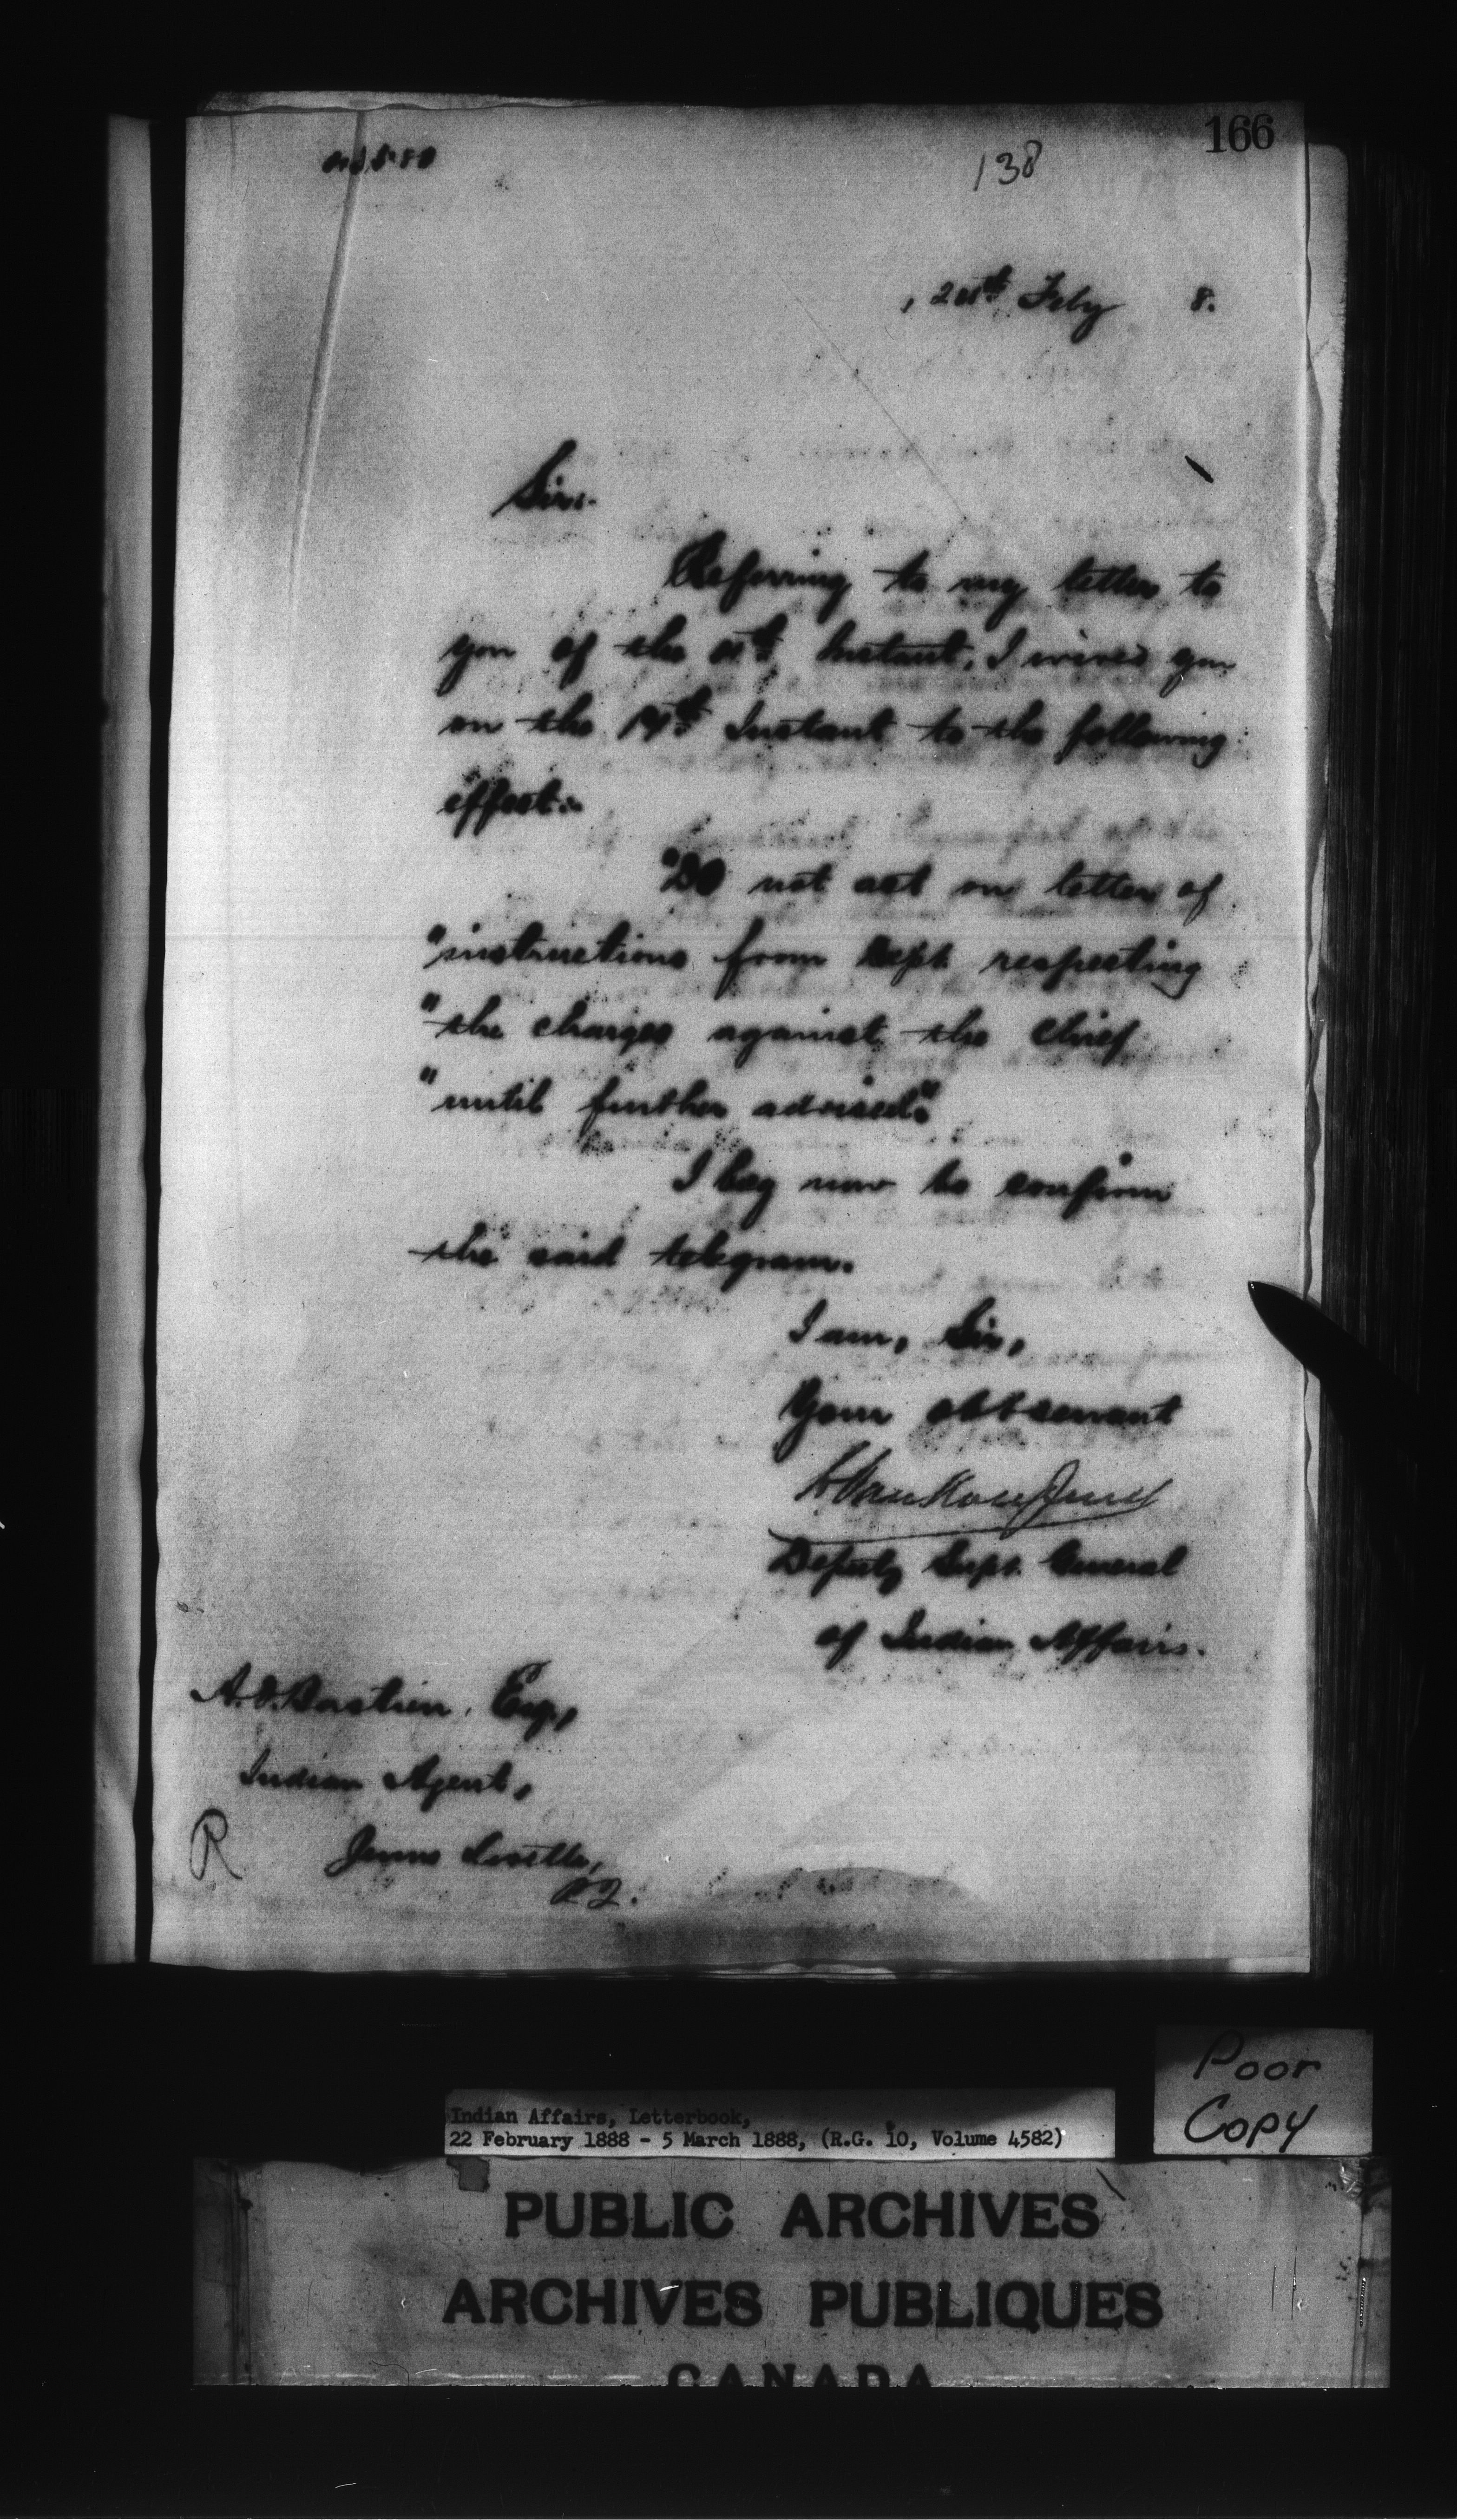 166
138
Feby 8.
Sir:-
Referring to my letter to
you of the Instant, I wired you
on the Instant to the following
effect:-
"Do not act on letter of
"instructions from Dept. respecting
"the charges against the Chief
"until further advised."
I beg now to confirm
the said telegram.
I am, Sir,
Your obt servant
L VanKoughnet
Deputy Supt. General
of Indian Affairs.
A. O. Bastien, Esq.,
Indian Agent,
R
Jeune Lorette,
P.Q.
Poor
Copy
Indian Affairs, Letterbook,
22 February 1888 - 5 March 1888, (R.G. 10, Volume 4582)
PUBLIC ARCHIVES
ARCHIVES PUBLIQUES
CANADA